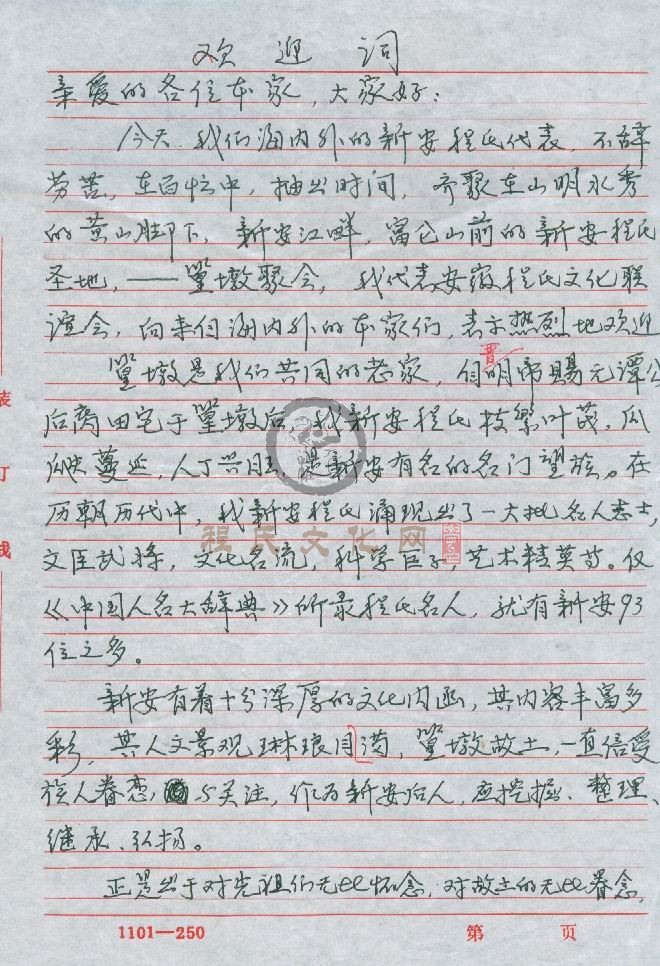 欢迎词
亲爱的各位本家，大家好：
今天，我们海内外的新安程氏代表，不辞
劳苦，在百忙中，抽出时间，齐聚在山明水秀
的黄山脚下，新安江畔，富仑山前的新安程氏
圣地，——篁墩聚会，我代表安徽程氏文化联
谊会，向来自海内外的本家们，表示热烈地欢迎
篁墩是我们共同的老家，自晋明帝赐元谭公
后裔田宅于篁墩后，我新安程氏枝繁叶茂，瓜
瓞蔓延，人丁兴旺，是新安有名的名门望族。在
历朝历代中，我新安程氏涌现出了一大批名人志士，
文臣武将，文化名流，科学巨子，艺术精英等。仅
《中国人名大辞典》所录程氏名人，就有新安93
位之多。
新安有着十分深厚的文化内函，其内容丰富多
彩，其人文景观琳琅目满，篁墩故土，一直倍受
族人眷恋，与关注，作为新安后人，应挖掘、整理、
继承、弘扬。
正是出于对先祖们无比怀念，对故土的无比眷念，
程氏文化网
装
订
线
1101—250
第 页